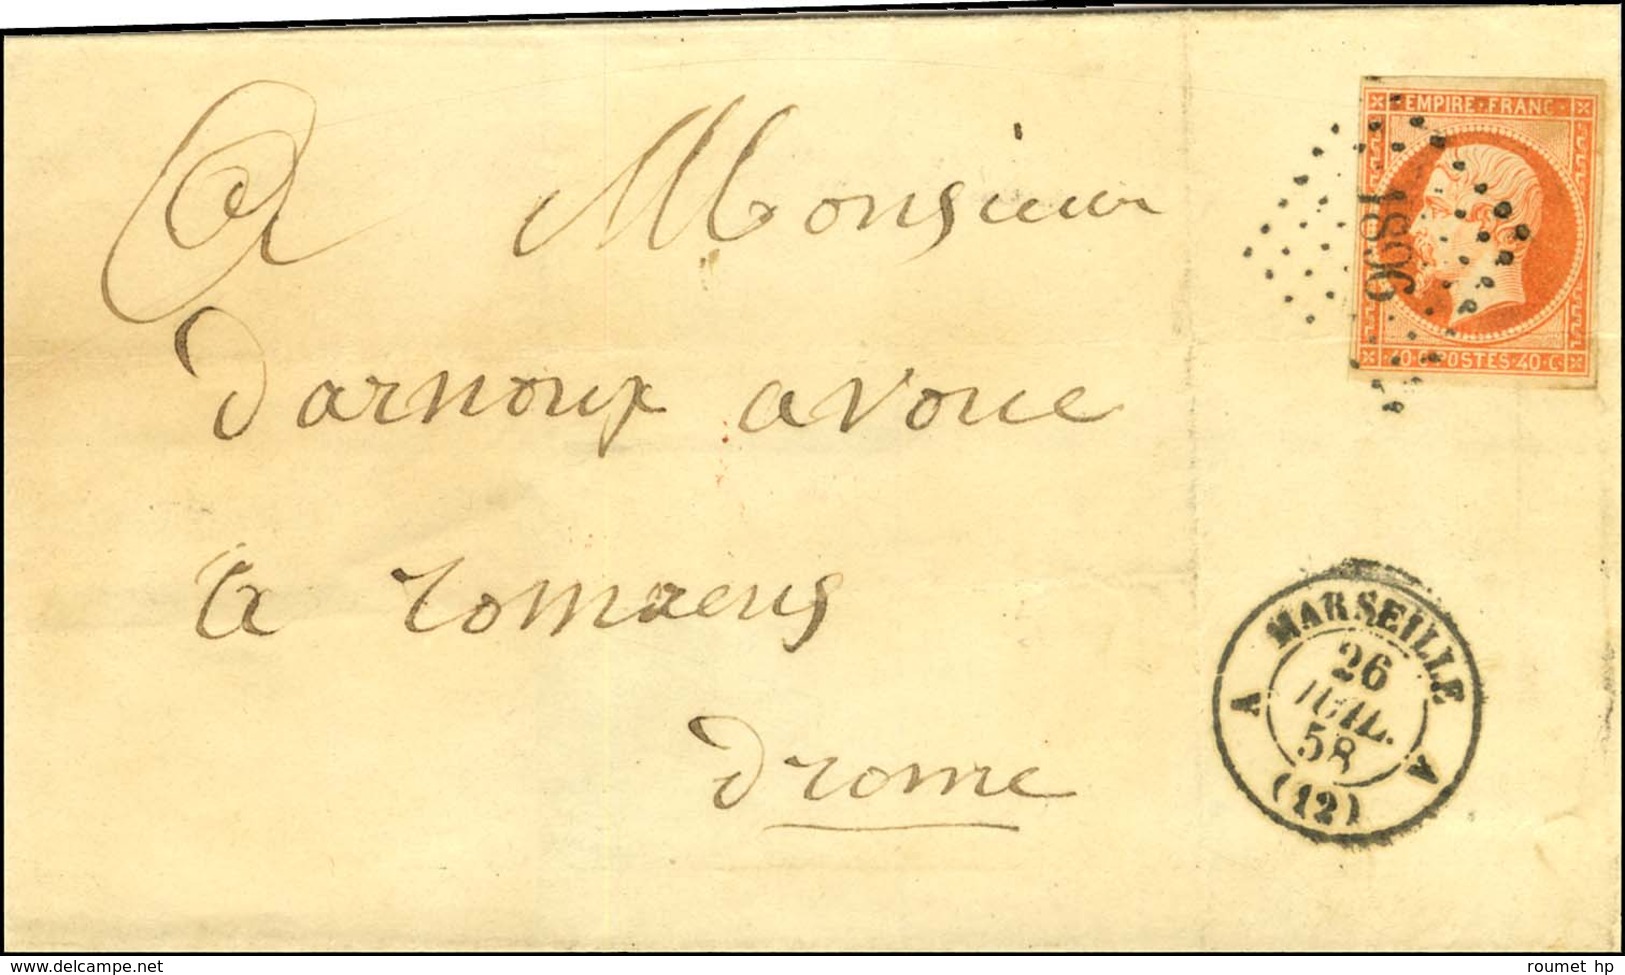 A Monsieur
Darnoux avoue
a romaens
Drome
EMPIRE FRANC
1896
40 C. POSTES 40 C.
MARSEILLE
26
JUIL.
58
A A
(12)
www.delcampe.net
roumet hp